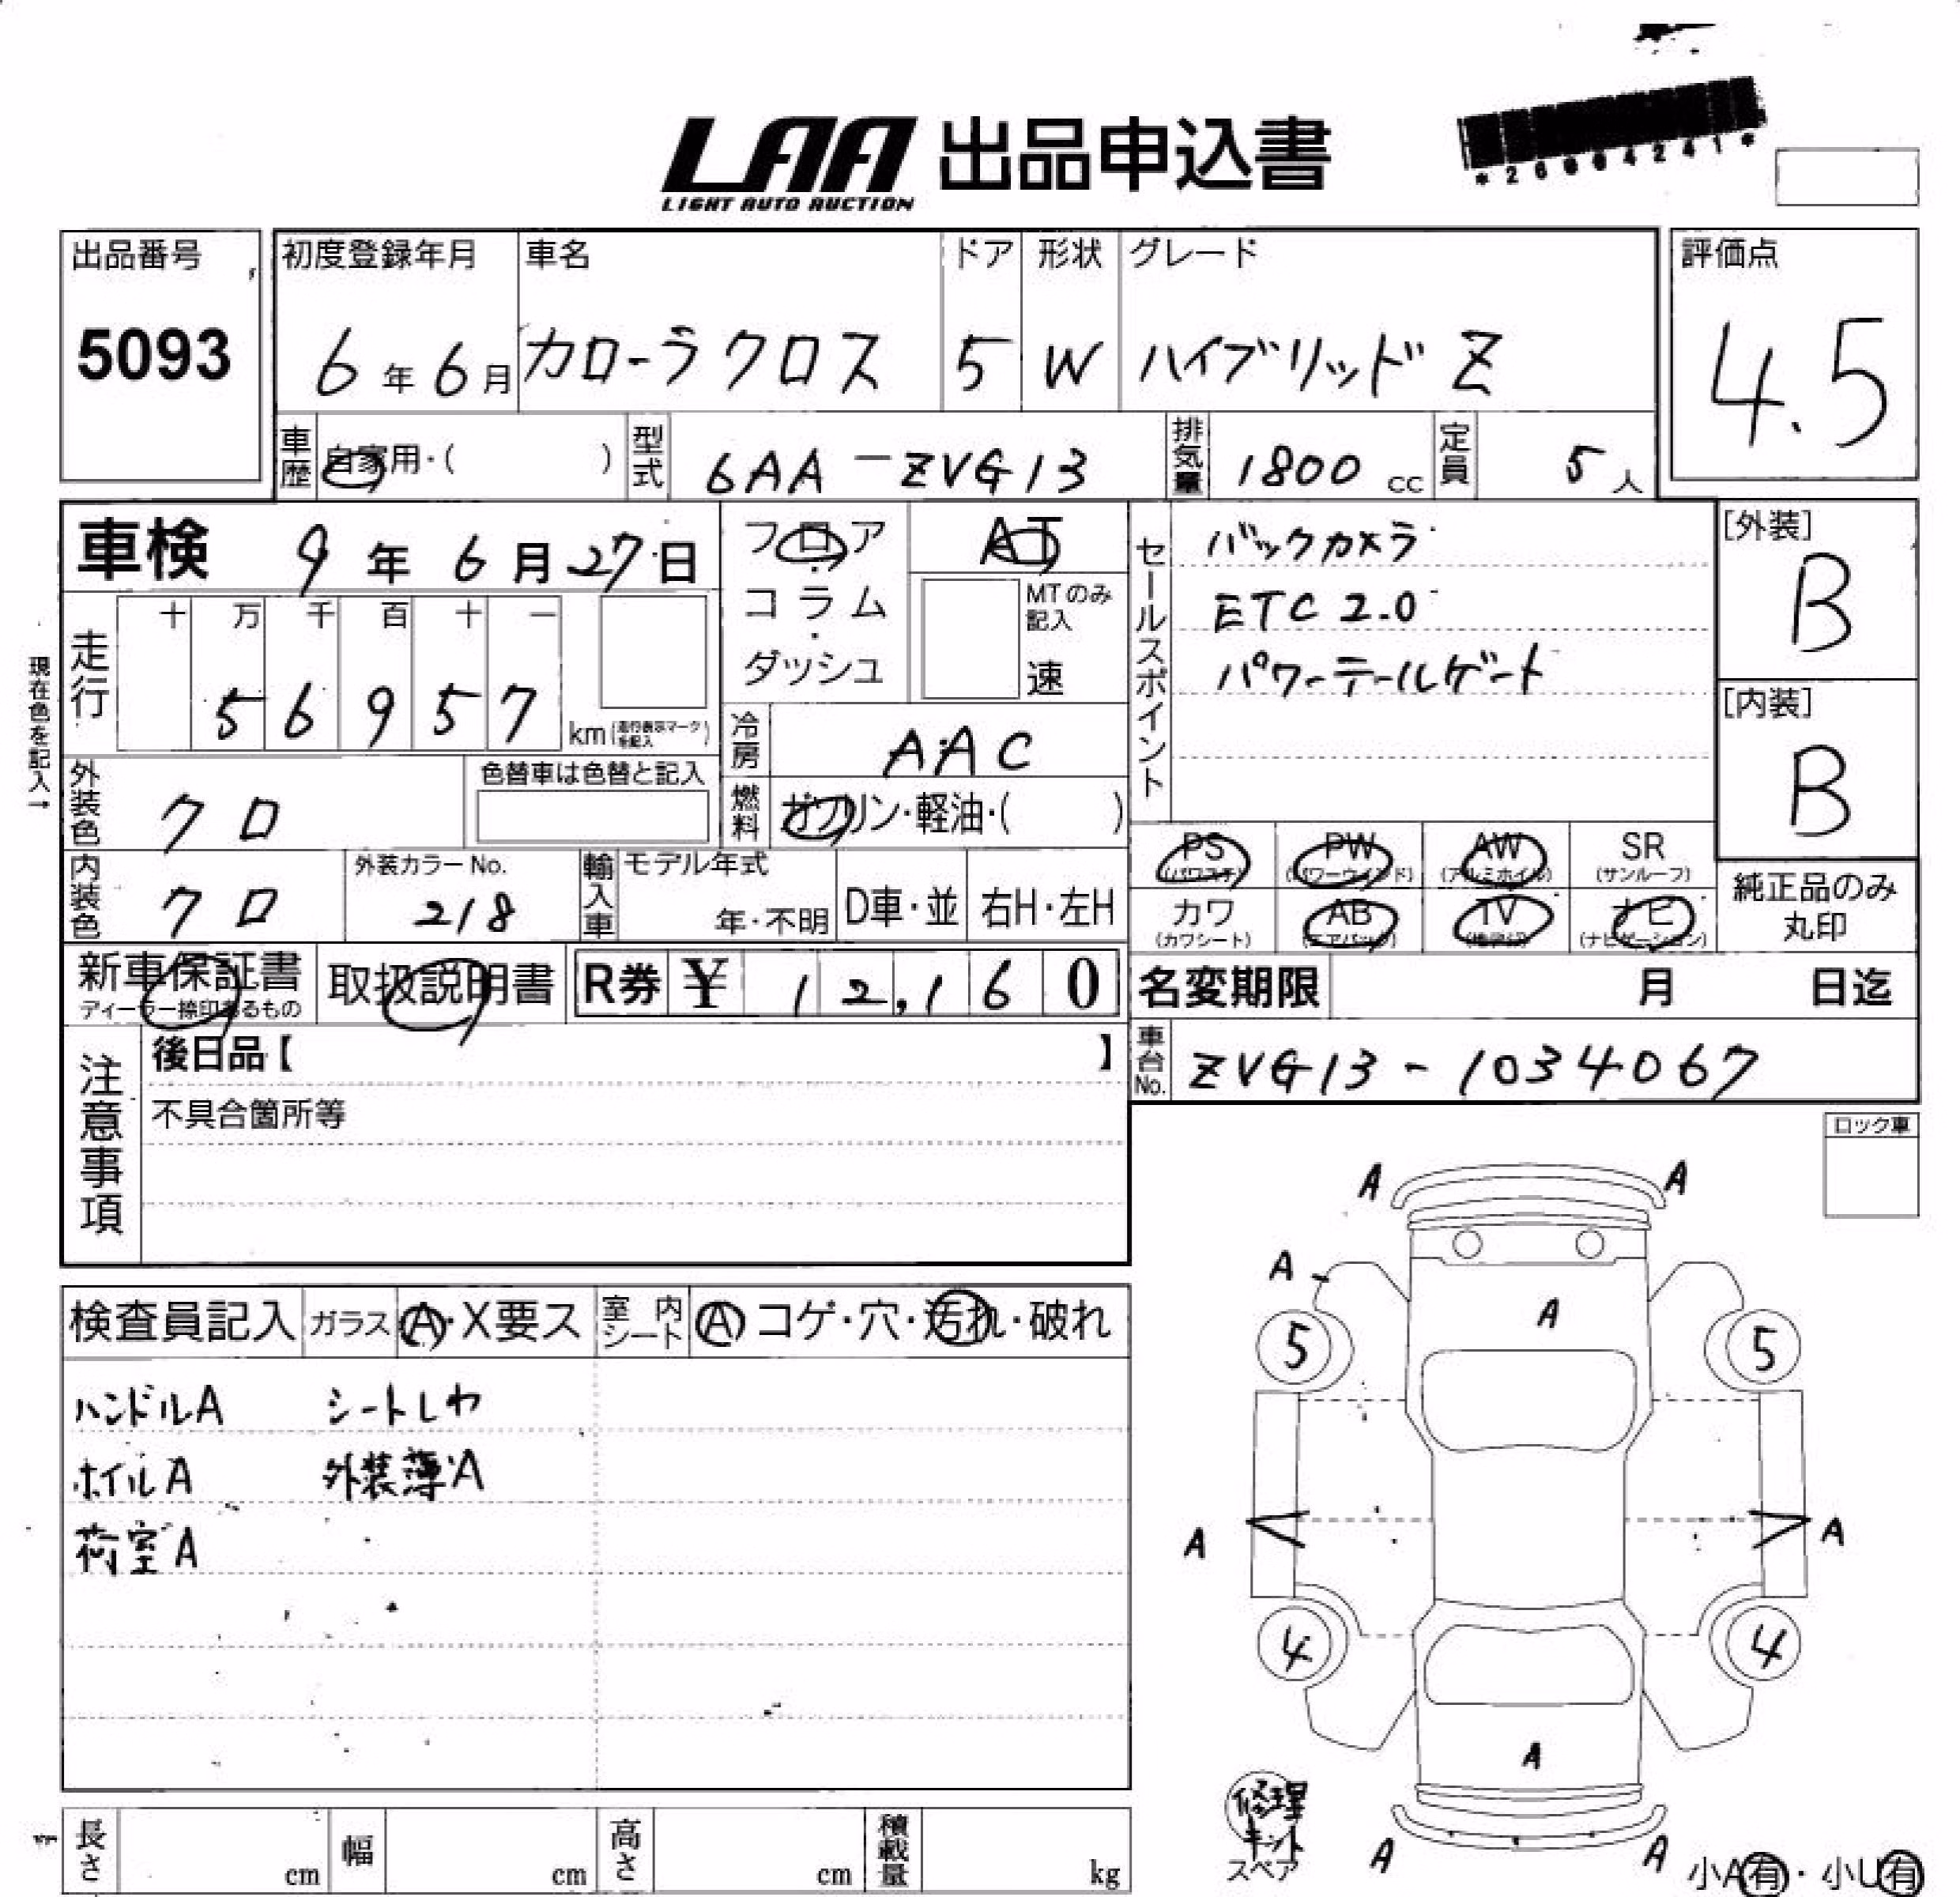 LAA 出品申込書
LIGHT AUTO AUCTION
*26004241*
出品番号
5093
初度登録年月
6年6月
車名
カローラクロス
ドア
5
形状
W
グレード
ハイブリッドZ
評価点
4.5
車歴
自家用・( )
型式
6AA-ZVG13
排気量
1800 cc
定員
5人
車検 9年6月27日
現在色を記入→
走行
十 万 千 百 十 一
5 6 9 5 7
km(走行表示マークを記入)
フロア
・
コラム
・
ダッシュ
AT
MTのみ記入
速
冷房
AAC
燃料
ガソリン・軽油・( )
セールスポイント
バックカメラ
ETC2.0
パワーテールゲート
[外装]
B
[内装]
B
外装色
クロ
色替車は色替と記入
内装色
クロ
外装カラーNo.
218
輸入車
モデル年式
年・不明
D車・並
右H・左H
PS
(パワステ)
PW
(パワーウインド)
AW
(アルミホイル)
SR
(サンルーフ)
カワ
(カワシート)
AB
(エアバック)
TV
(地デジ)
ナビ
(ナビゲーション)
純正品のみ
丸印
新車保証書
ディーラー捺印あるもの
取扱説明書
R券 ¥ 12,160
名変期限 月 日迄
車台No.
ZVG13-1034067
注意事項
後日品【 】
不具合箇所等
ロック車
検査員記入
ガラス
A・X要ス
室内シート
A コゲ・穴・汚れ・破れ
ハンドルA シートしわ
ホイルA 外装薄A
荷室A
A A
A
A
5 5
A A
4 4
A
修理キット
スペア
A A
小A有・小U有
長さ cm
幅 cm
高さ cm
積載量 kg